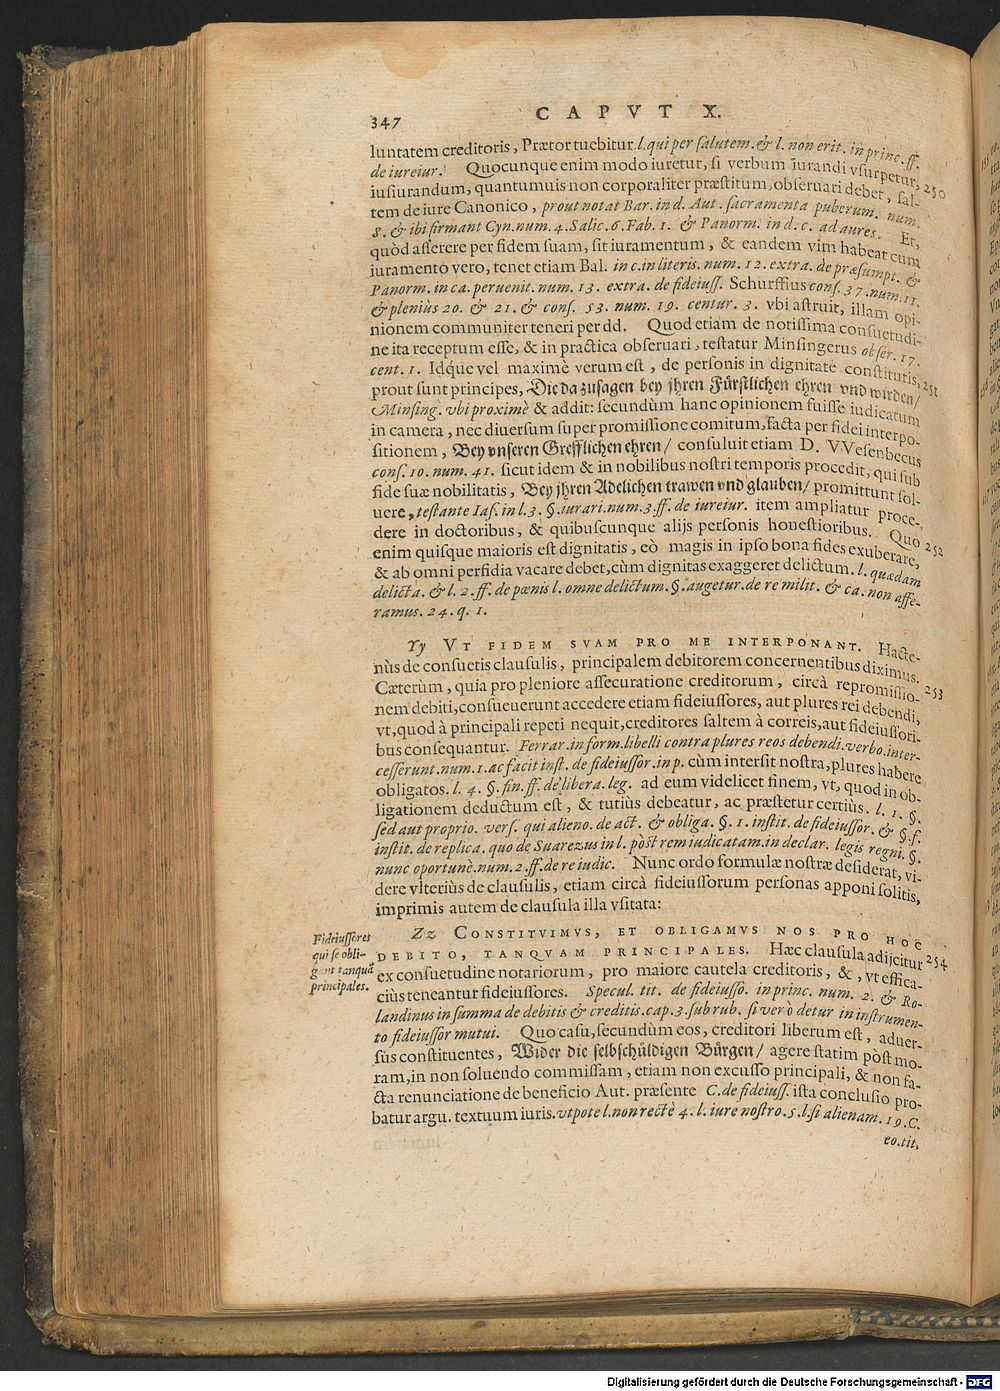 347 CAPVT X.
luntatem creditoris, Prætor tuebitur. l. qui per salutem. & l. non erit. in princ. ff.
de iureiur. Quocunque enim modo iuretur, si verbum iurandi vsurpetur, 250
iusiurandum, quantumuis non corporaliter præstitum, obseruari debet, sal-
tem de iure Canonico, prout notat Bar. in d. Aut. sacramenta puberum. num.
8. & ibi firmant Cyn. num. 4. Salic. 6. Fab. 1. & Panorm. in d. c. ad aures. Et,
quòd asserere per fidem suam, sit iuramentum, & eandem vim habeat cum
iuramento vero, tenet etiam Bal. in c. in literis. num. 12. extra. de præsumpt. &
Panorm. in ca. peruenit. num. 13. extra. de fideiuss. Schurffius cons. 37. num. 11.
& pleniùs 20. & 21. & cons. 53. num. 19. centur. 3. vbi astruit, illam opi-
nionem communiter teneri per dd. Quod etiam de notissima consuetudi-
ne ita receptum esse, & in practica obseruari, testatur Minsingerus obser. 17.
cent. 1. Idque vel maximè verum est, de personis in dignitate constitutis, 251
prout sunt principes, Die da zusagen bey jhren Fürstlichen ehren vnd wirden/
Minsing. vbi proximè & addit: secundùm hanc opinionem fuisse iudicatum
in camera, nec diuersum super promissione comitum, facta per fidei interpo-
sitionem, Bey vnseren Grefflichen ehren/ consuluit etiam D. VVesenbecus
cons. 10. num. 41. sicut idem & in nobilibus nostri temporis procedit, qui sub
fide suæ nobilitatis, Bey jhren Adelichen trawen vnd glauben/ promittunt sol-
uere, testante Ias. in l. 3. §. iurari. num. 3. ff. de iureiur. item ampliatur proce-
dere in doctoribus, & quibuscunque alijs personis honestioribus. Quo 252
enim quisque maioris est dignitatis, eò magis in ipso bona fides exuberare,
& ab omni perfidia vacare debet, cùm dignitas exaggeret delictum. l. quædam
delicta. & l. 2. ff. de pœnis l. omne delictum. §. augetur. de re milit. & ca. non affe-
ramus. 24. q. 1.
Yy VT FIDEM SVAM PRO ME INTERPONANT. Hacte-
nùs de consuetis clausulis, principalem debitorem concernentibus diximus.
Cæterùm, quia pro pleniore assecuratione creditorum, circà repromissio- 253
nem debiti, consueuerunt accedere etiam fideiussores, aut plures rei debendi,
vt, quod à principali repeti nequit, creditores saltem à correis, aut fideiussori-
bus consequantur. Ferrar. in form. libelli contra plures reos debendi. verbo. inter-
cesserunt. num. 1. ac facit inst. de fideiussor. in p. cùm intersit nostra, plures habere
obligatos. l. 4. §. fin. ff. de libera. leg. ad eum videlicet finem, vt, quod in ob-
ligationem deductum est, & tutiùs debeatur, ac præstetur certiùs. l. 1. §.
sed aut proprio. vers. qui alieno. de act. & obliga. §. 1. instit. de fideiussor. & §. f.
instit. de replica. quo de Suarezus in l. pòst rem iudicatam. in declar. legis regni. §.
nunc oportunè. num. 2. ff. de re iudic. Nunc ordo formulæ nostræ desiderat, vi-
dere vlteriùs de clausulis, etiam circà fideiussorum personas apponi solitis,
imprimis autem de clausula illa vsitata:
Fideiussores
qui se obli-
gant tanquā
principales.
Zz CONSTITVIMVS, ET OBLIGAMVS NOS PRO HOC
DEBITO, TANQVAM PRINCIPALES. Hæc clausula adijcitur 254
ex consuetudine notariorum, pro maiore cautela creditoris, &, vt effica-
ciùs teneantur fideiussores. Specul. tit. de fideiusso. in princ. num. 2. & Ro-
landinus in summa de debitis & creditis. cap. 3. sub rub. si verò detur in instrumen-
to fideiussor mutui. Quo casu, secundùm eos, creditori liberum est, aduer-
sus constituentes, Wider die selbschüldigen Bürgen/ agere statim pòst mo-
ram, in non soluendo commissam, etiam non excusso principali, & non fa-
cta renunciatione de beneficio Aut. præsente C. de fideiuss. ista conclusio pro-
batur argu. textuum iuris. vtpote l. non rectè 4. l. iure nostro. 5. l. si alienam. 19. C.
eo. tit.
Digitalisierung gefördert durch die Deutsche Forschungsgemeinschaft - DFG